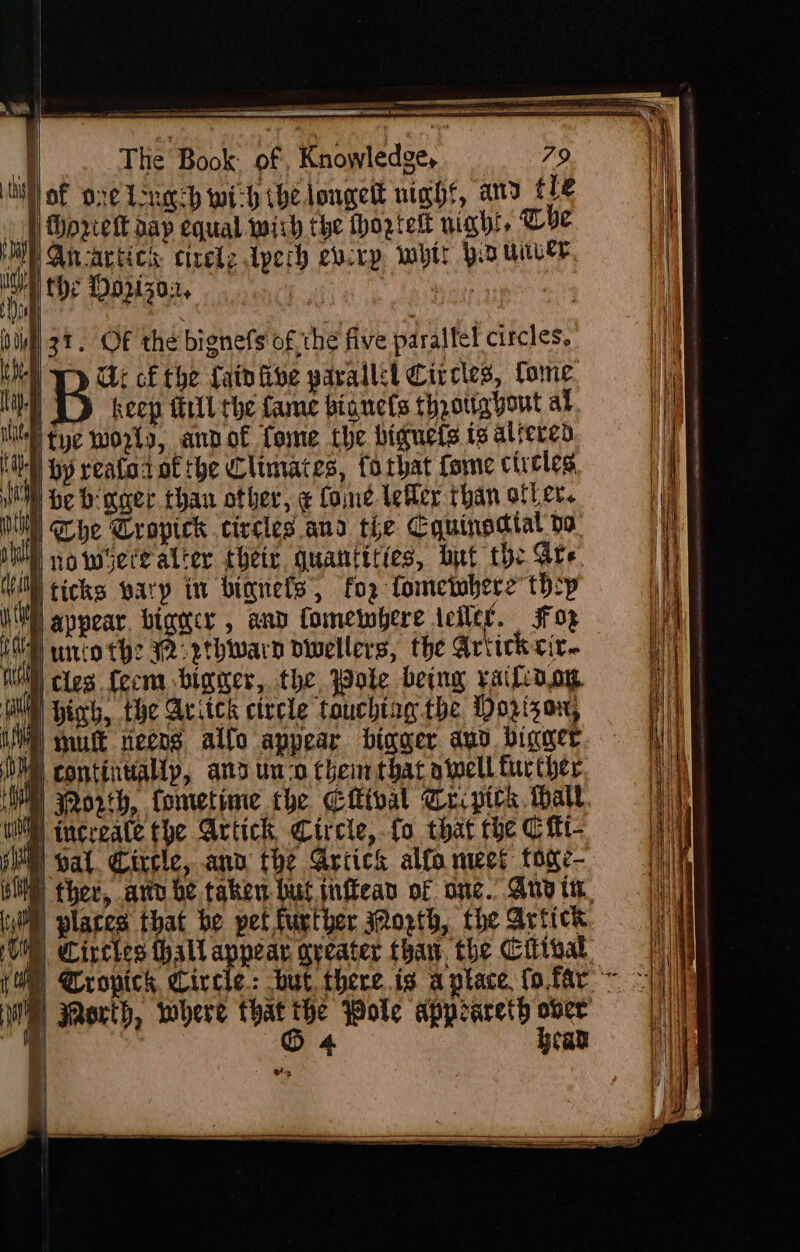 The Book of Knowledge, 79
of one length with the longest night, and the
ſhorteſt day equal with the ſhorteſt night, The
An:artick circle lyeth every whit hid under
the Horizon.
31. Of the bigneſs of the five parallel circles.
But of the ſaid five parallel Circles, ſome
keep ſtill the ſame bigneſs throughout al
the world, and of ſome the bigneſs is altered
by reaſon of the Climates, ſo that ſome circles
be bigger than other, & ſome leſſer than other.
The Tropick circles and the Equinoctial do
no where alter their quantities, but the Ar-
ticks vary in bigneſs, for ſomewhere they
appear bigger, and ſomewhere leſſer. For
unto the Northward dwellers, the Artick cir-
cles ſeem bigger, the Pole being raiſed on
high, the Artick circle touching the Horizon,
muſt needs alſo appear bigger and bigger
continually, and unto them that dwell further
North, ſometime the Eſtival Tropick ſhall
increaſe the Artick Circle, ſo that the Eſti-
val Circle, and the Artick alſo meet toge-
ther, and be taken but inſtead of one. And in
places that be yet further North, the Artick
Circles ſhall appear greater than the Eſtival
Tropick Circle: but there is a place ſo far
North, where that the Pole appeareth over
G 4 head